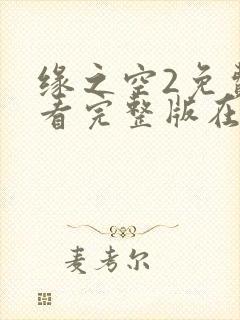 缘之空2免费
看完整版在
麦考尔